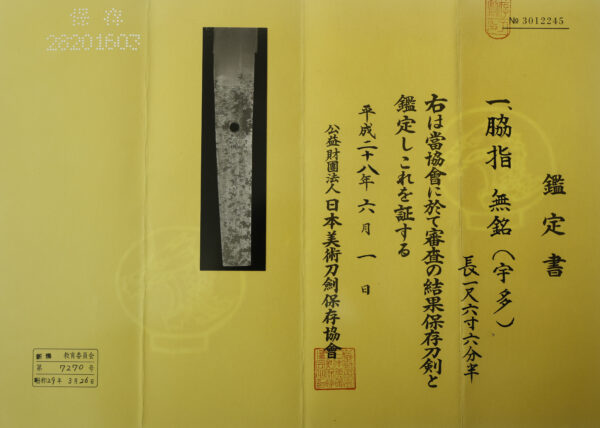 № 3012245
鑑定書
一、脇指 無銘（宇多）
長一尺六寸六分半
右は當協會に於て審査の結果保存刀剣と
鑑定しこれを証する
平成二十八年六月一日
公益財團法人 日本美術刀劍保存協會
保存
28201603
新潟 教育委員会
第 7270 号
昭和29年 3月26日